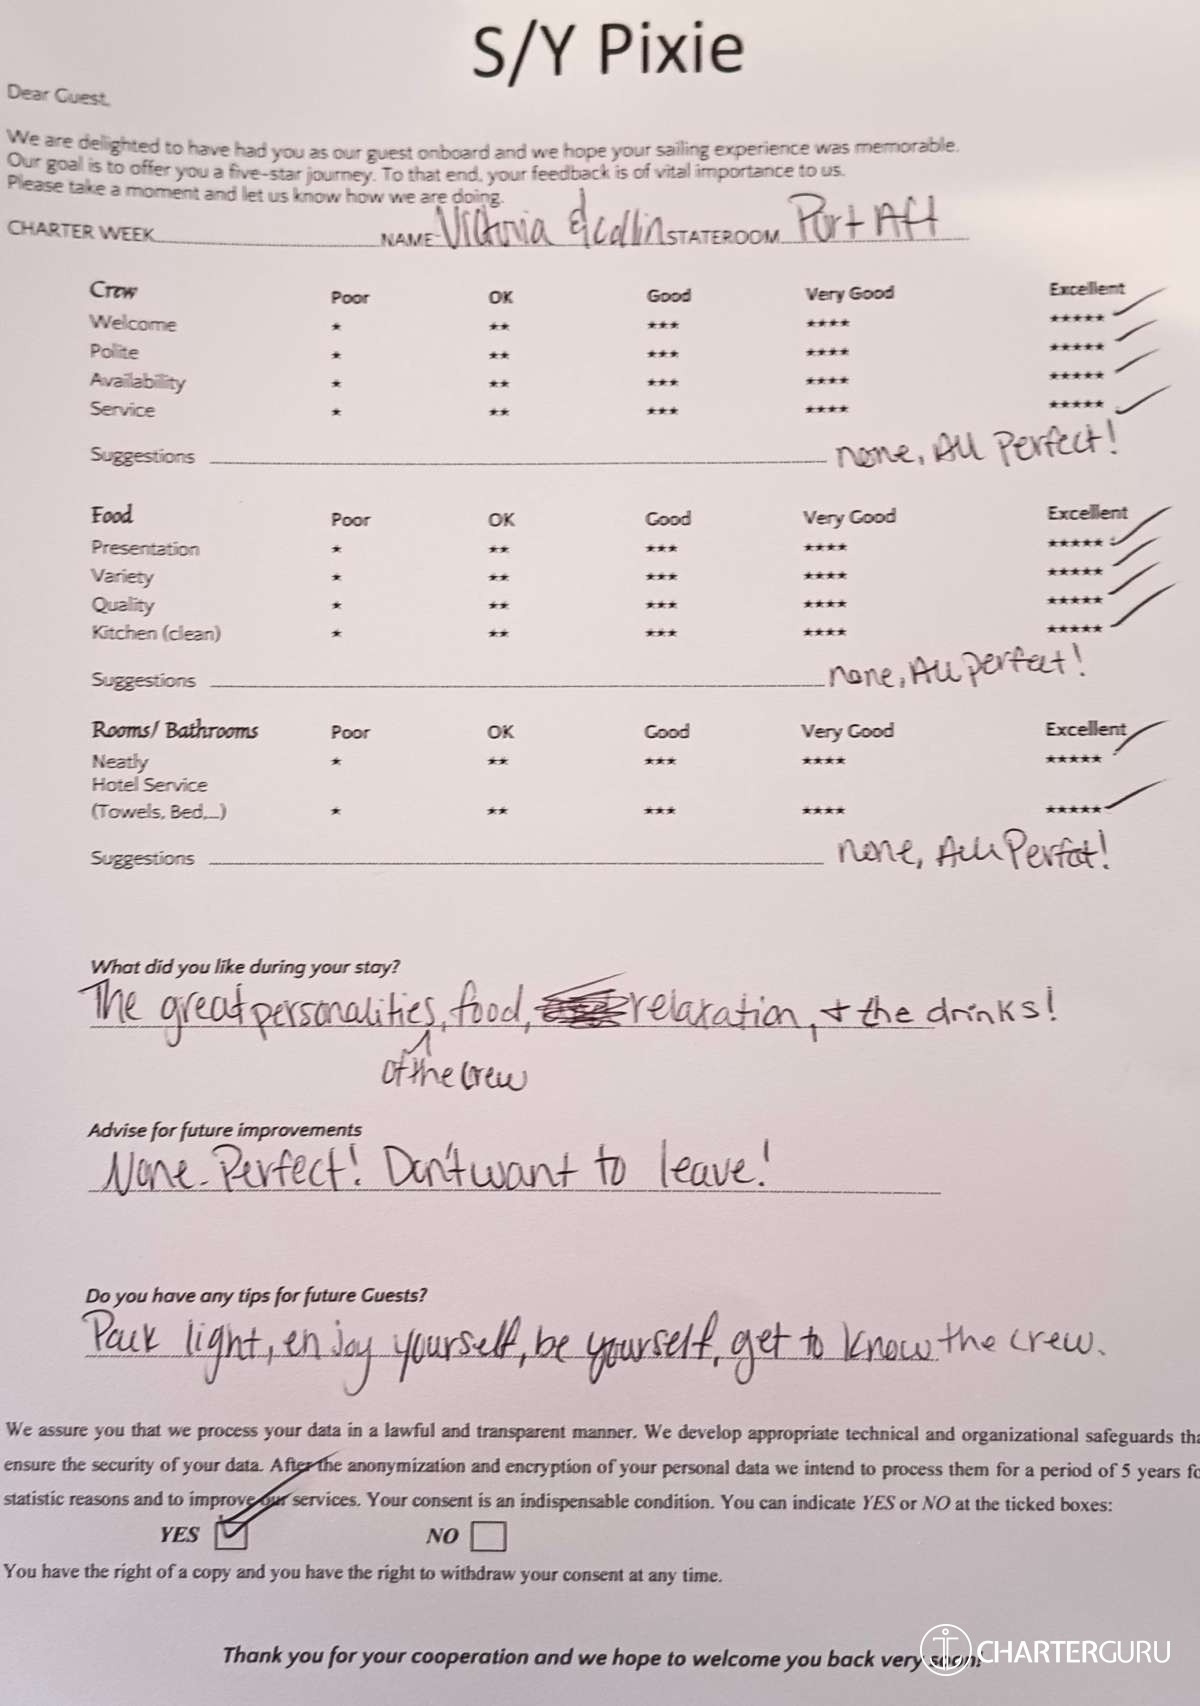 S/Y Pixie
Dear Guest,
We are delighted to have had you as our guest onboard and we hope your sailing experience was memorable.
Our goal is to offer you a five-star journey. To that end, your feedback is of vital importance to us.
Please take a moment and let us know how we are doing.
CHARTER WEEK NAME Victoria & Collin STATEROOM Port Aft
Crew Poor OK Good Very Good Excellent
Welcome * ** *** **** ***** ✓
Polite * ** *** **** ***** ✓
Availability * ** *** **** ***** ✓
Service * ** *** **** ***** ✓
Suggestions none, All Perfect!
Food Poor OK Good Very Good Excellent
Presentation * ** *** **** ***** ✓
Variety * ** *** **** ***** ✓
Quality * ** *** **** ***** ✓
Kitchen (clean) * ** *** **** ***** ✓
Suggestions none, All perfect!
Rooms/ Bathrooms Poor OK Good Very Good Excellent
Neatly * ** *** **** ***** ✓
Hotel Service
(Towels, Bed,...) * ** *** **** ***** ✓
Suggestions none, All Perfect!
What did you like during your stay?
The great personalities, food, relaxation, + the drinks!
of the crew
Advise for future improvements
None. Perfect! Don't want to leave!
Do you have any tips for future Guests?
Pack light, enjoy yourself, be yourself, get to know the crew.
We assure you that we process your data in a lawful and transparent manner. We develop appropriate technical and organizational safeguards tha
ensure the security of your data. After the anonymization and encryption of your personal data we intend to process them for a period of 5 years fo
statistic reasons and to improve our services. Your consent is an indispensable condition. You can indicate YES or NO at the ticked boxes:
YES ✓ NO
You have the right of a copy and you have the right to withdraw your consent at any time.
Thank you for your cooperation and we hope to welcome you back very soon!
CHARTERGURU